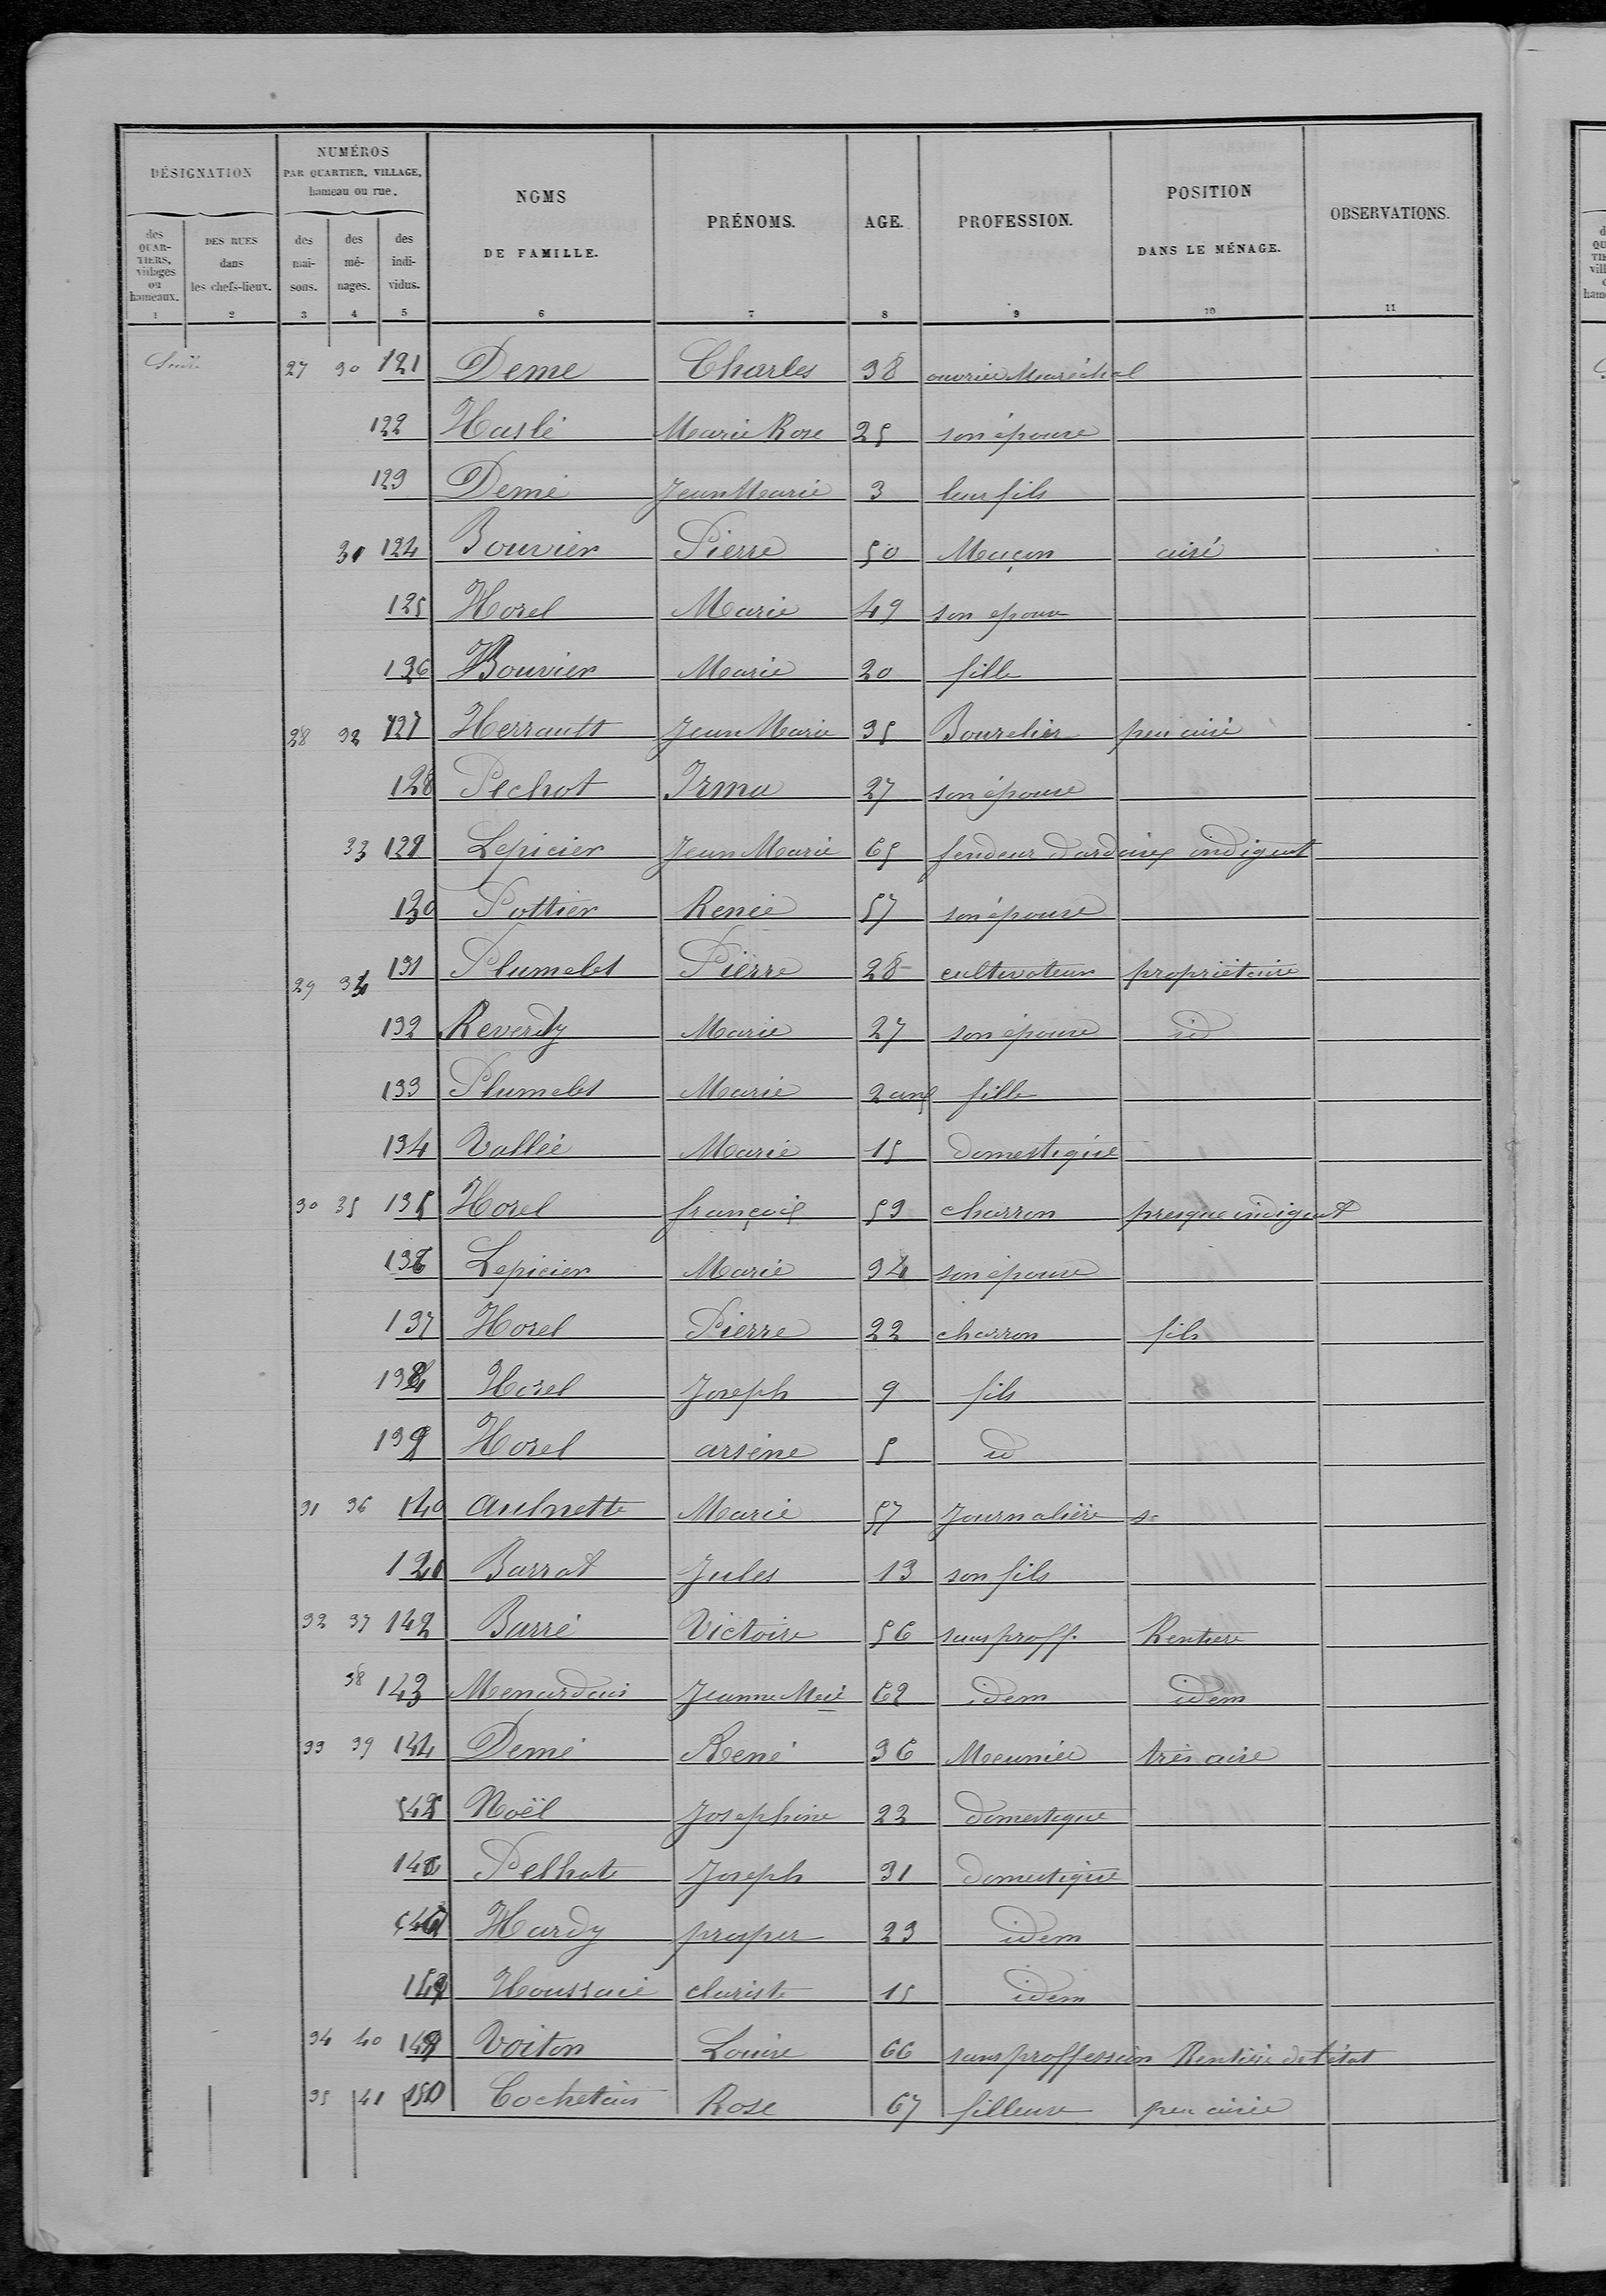 DÉSIGNATION
NUMÉROS
PAR QUARTIER, VILLAGE,
hameau ou rue.
NOMS
DE FAMILLE.
PRÉNOMS.
AGE.
PROFESSION.
POSITION
DANS LE MÉNAGE.
OBSERVATIONS.
des QUARTIERS, villages ou hameaux.
DES RUES dans les chefs-lieux.
des maisons.
des ménages.
des individus.
1 2 3 4 5 6 7 8 9 10 11
27 30 121 Deme Charles 38 ouvrier Maréchal
122 Haslé Marie Rose 25 son épouse
123 Demé Jean Marie 3 leur fils
31 124 Bouvier Pierre 50 Maçon aisé
125 Horel Marie 49 son epouse
126 Bouvier Marie 20 fille
28 32 127 Herrault Jean Marie 35 Bourelier peu aisé
128 Pechot Irma 27 son épouse
33 129 Lepicier Jean Marie 65 fendeur dardoises indigent
130 Pottier Renée 57 son épouse
29 34 131 Plumelet Pierre 28 cultivateur propriétaire
132 Reverdy Marie 27 son épouse id
133 Plumelet Marie 2 ans fille
134 Vallée Marie 15 domestique
30 35 135 Horel françois 53 charron presque indigent
136 Lepicier Marie 34 son épouse
137 Horel Pierre 22 charron fils
138 Horel Joseph 9 fils
139 Horel arsène 5 id
31 36 140 Aulnette Marie 57 Journalière
Barrat Jules 13 son fils
32 37 142 Barré Victoire 56 sans proff. Rentiere
38 143 Menardais Jeanne Mie 62 idem idem
33 39 144 Demé René 36 Meunier très aisé
145 Noël Josephine 22 domestique
146 Pelhate Joseph 31 domestique
Hardy prosper 23 idem
148 Houssaie clariste 15 idem
34 40 149 Voiton Louise 66 sans proffession Rentière de l'état
35 41 150 Cochetais Rose 67 filleuse peu aisée